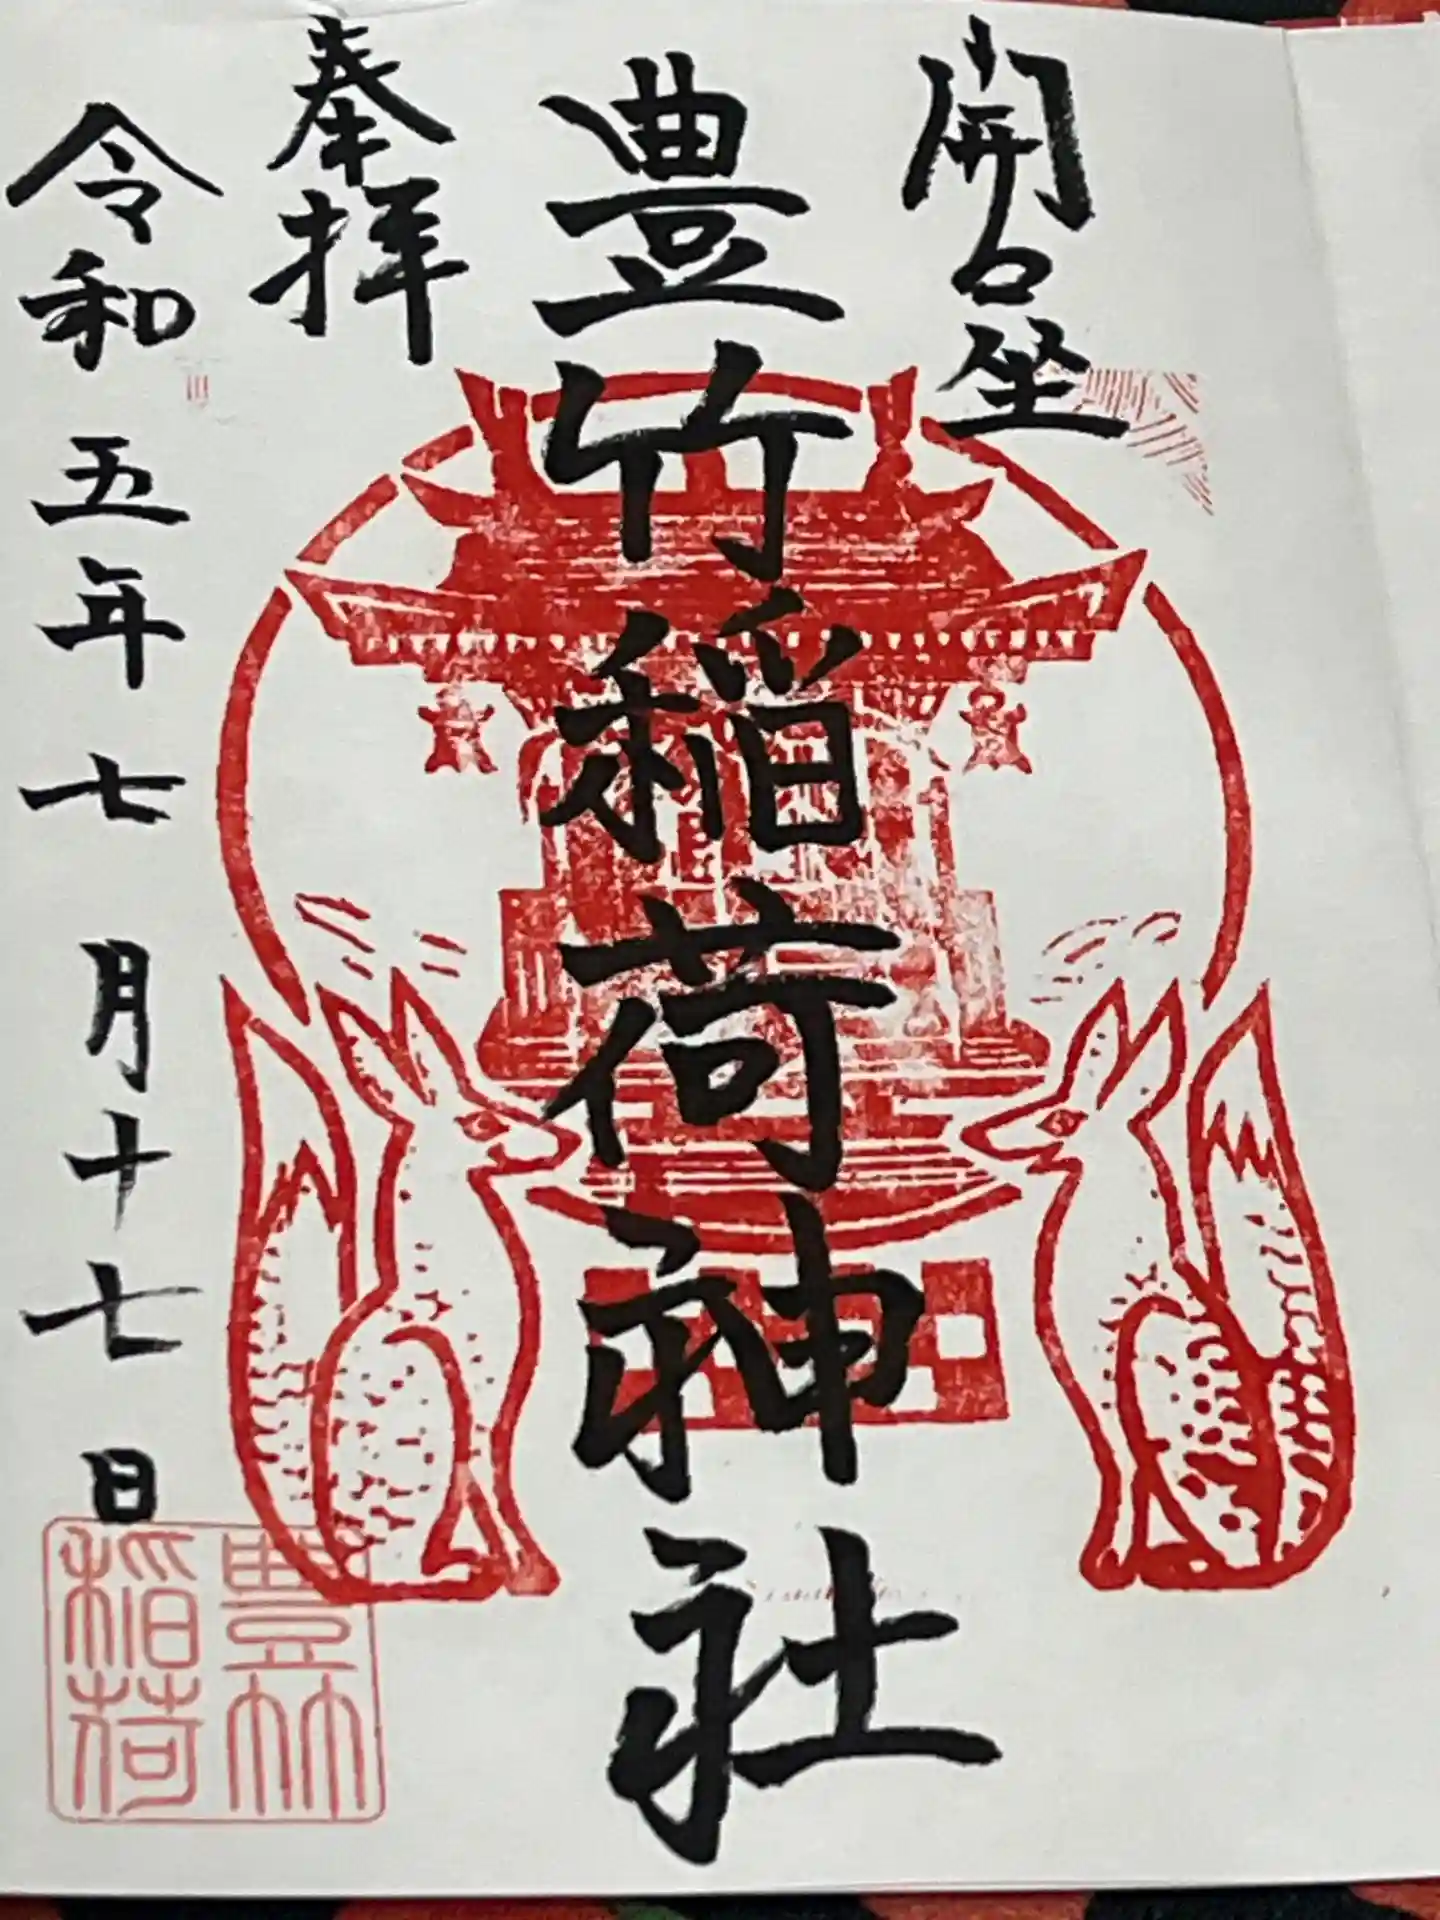 開口坐
豊竹稲荷神社
奉拝
令和五年七月十七日
豊竹
稲荷